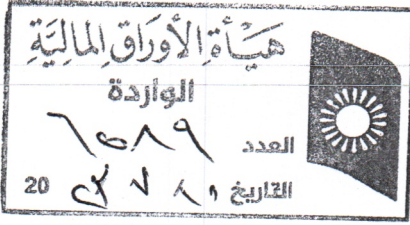 هَيْأَةِ الأَوْرَاقِ المَالِيَّةِ
الواردة
العدد ٦٥٨٩
التاريخ 20